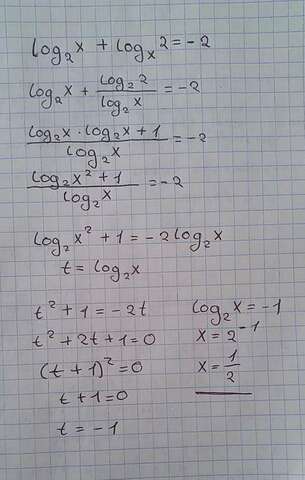 log₂x + logₓ2 = -2
log₂x + log₂2/log₂x = -2
(log₂x · log₂x + 1)/log₂x = -2
(log₂x² + 1)/log₂x = -2
log₂x² + 1 = -2log₂x
t = log₂x
t² + 1 = -2t
t² + 2t + 1 = 0
(t + 1)² = 0
t + 1 = 0
t = -1
log₂x = -1
x = 2⁻¹
x = 1/2